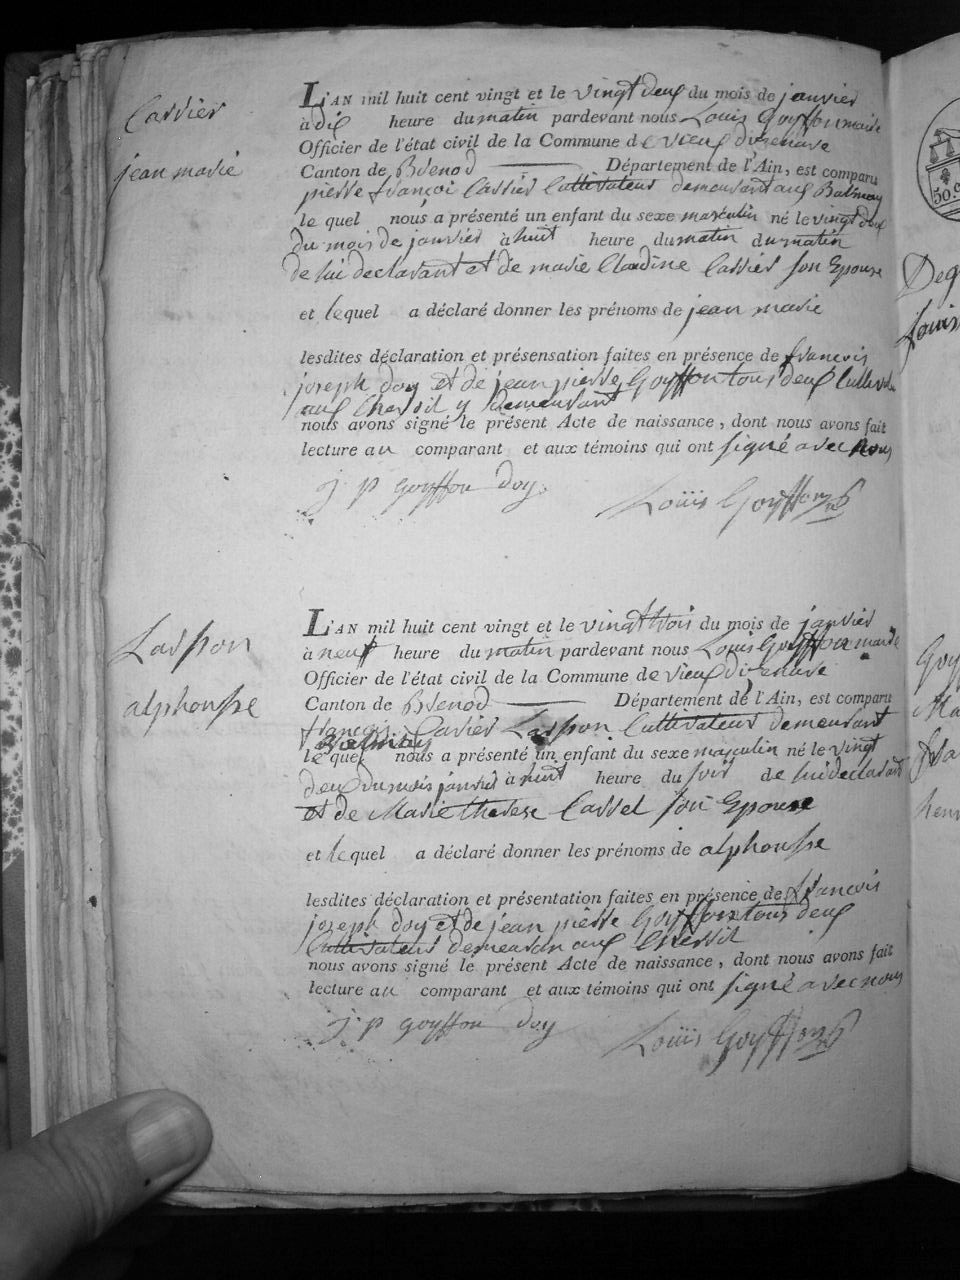 Carrier
jean marie
L'AN mil huit cent vingt et le vingt deux du mois de janvier
à dix heure du matin pardevant nous Louis Goyffon maire
Officier de l'état civil de la Commune de vieux dizenave
Canton de Brenod Département de l'Ain, est comparu
pierre françoi Carrier Cultivateur demeurant aux Balmay
le quel nous a présenté un enfant du sexe masculin né le vingt deux
du mois de janvier à huit heure du matin du matin
de lui declarant et de marie Claudine Carrier son Epouse
et lequel a déclaré donner les prénoms de jean marie
lesdites déclaration et présensation faites en présence de francois
joseph doy et de jean pierre Goyffon tous deux
aux Chessit y demeurant
nous avons signé le présent Acte de naissance, dont nous avons fait
lecture au comparant et aux témoins qui ont signé avec nous
j. p goyffon doy
Louis Goyffon
Lasson
alphonsse
L'AN mil huit cent vingt et le vingt trois du mois de janvier
à neuf heure du matin pardevant nous Louis Goyffon maire
Officier de l'état civil de la Commune de vieux dizenave
Canton de Brenod Département de l'Ain, est comparu
francois Carrier Lasson Cultivateur demeurant
Balmay
le quel nous a présenté un enfant du sexe masculin né le vingt
deux du mois janvier à huit heure du soir de lui declarant
et de Marie therese Cassel son Epouse
et lequel a déclaré donner les prénoms de alphonsse
lesdites déclaration et présentation faites en présence de francois
joseph doy et de jean pierre Goyffon tous deux
Cultivateur demeuran aux Chessit
nous avons signé le présent Acte de naissance, dont nous avons fait
lecture au comparant et aux témoins qui ont signé avec nous
j. p goyffon doy
Louis Goyffon